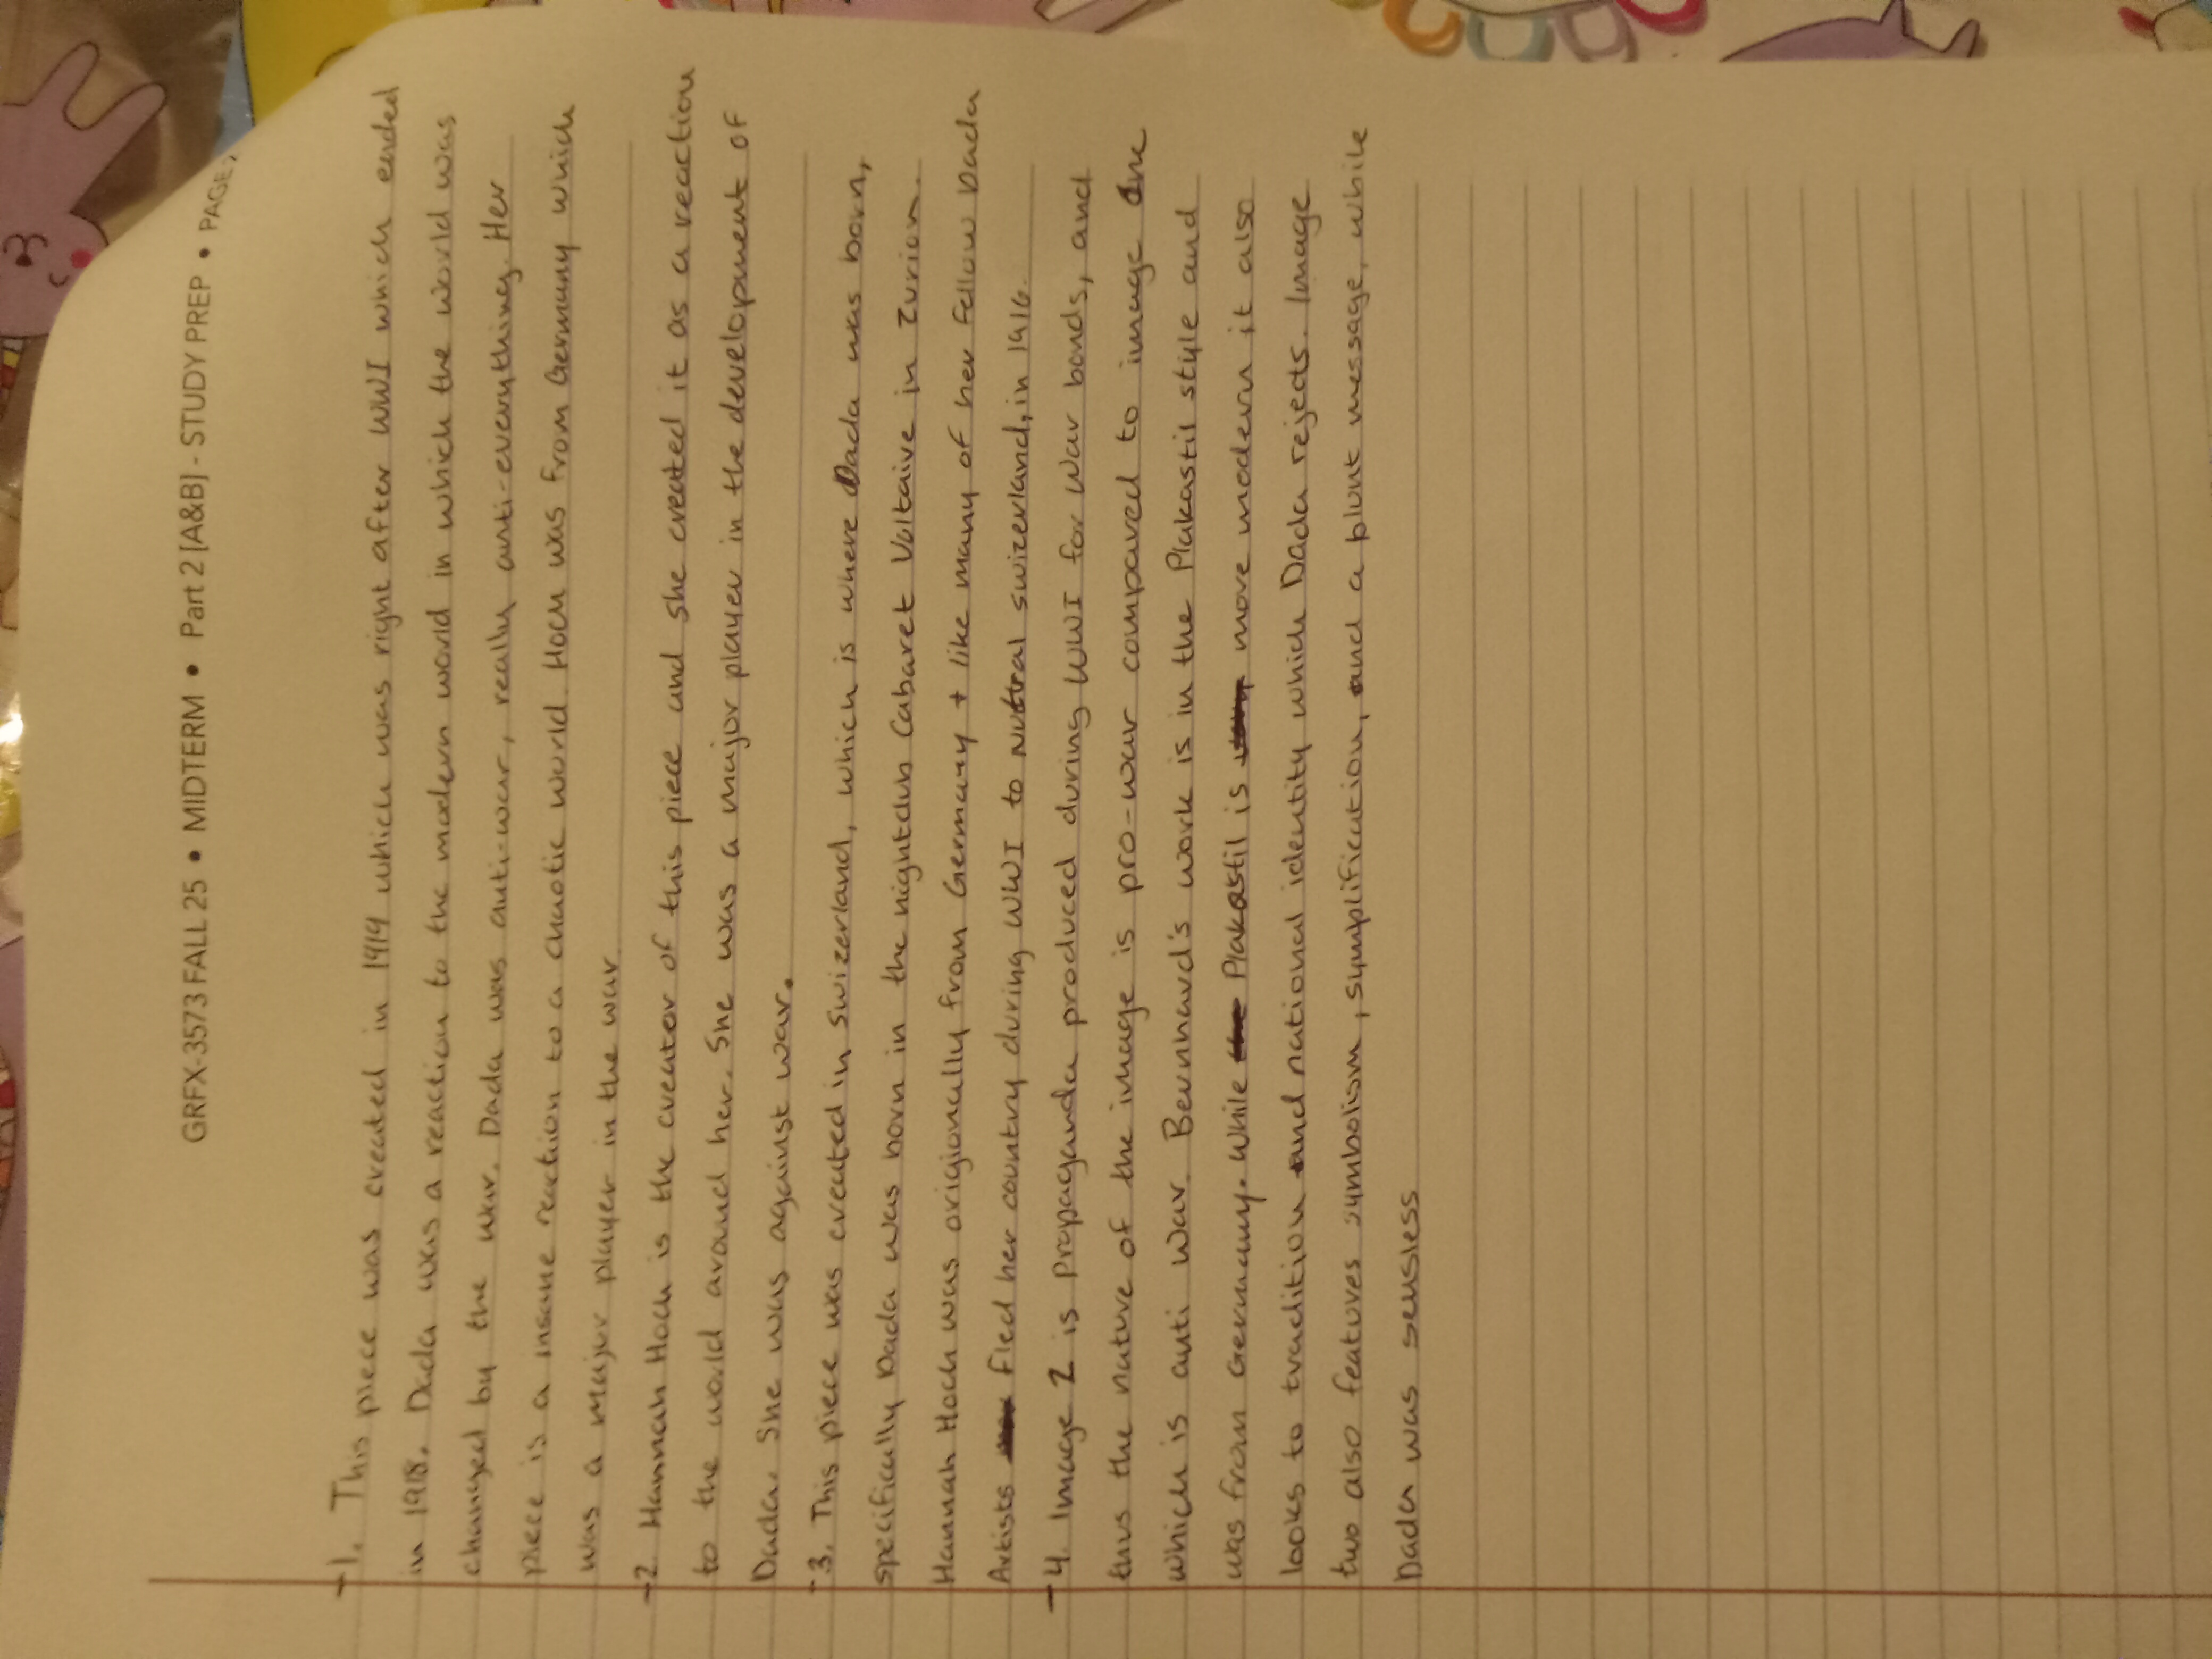 GRFX-3573 FALL 25 • MIDTERM • Part 2 [A&B] - STUDY PREP • PAGE
-1. This piece was created in 1919 which was right after WWI which ended
in 1918. Dada was a reaction to the modern world in which the world was
changed by the war. Dada was anti-war, really anti-everything. Her
piece is a insane reaction to a chaotic world. Hoch was from Germany which
was a major player in the war.
-2 Hannah Hoch is the creator of this piece and she created it as a reaction
to the world around her. She was a major player in the development of
Dada. She was against war.
-3. This piece was created in Swizerland, which is where Dada was born,
specifically Dada was born in the nightclub Cabaret Voltaire in Zurich.
Hannah Hoch was origionally from Germany + like many of her fellow Dada
Artists fled her country during WWI to nutral swizerland, in 1916.
-4. Image 2 is Propaganda produced during WWI for War bonds, and
thus the nature of the image is pro-war compared to image One
which is anti war. Bernhard's work is in the Plakastil style and
was from Germany. While the Plakastil is more modern it also
looks to tradition and national identity which Dada rejects. Image
two also features symbolism, symplification, and a blunt message, while
Dada was sensless